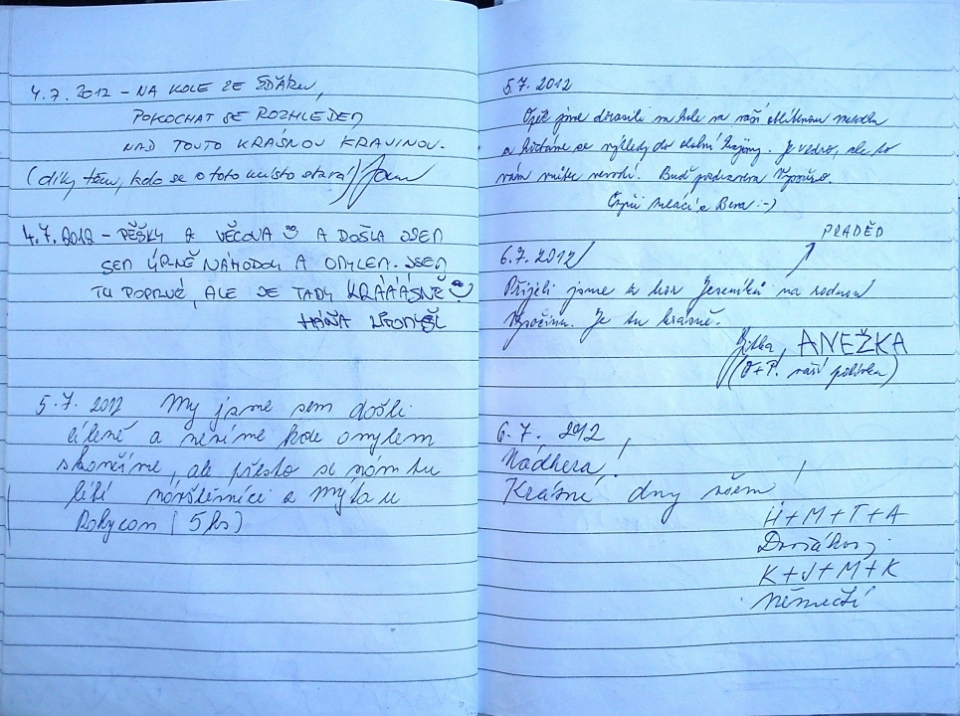 4.7.2012 - NA KOLE ZE ŽĎÁRU,
POKOCHAT SE ROZHLEDEM
NAD TOUTO KRÁSNOU KRAJINOU.
(díky těm, kdo se o toto místo stará)
4.7.2012 - PĚŠKY Z VĚCOVA A DOŠLA JSEM
SEM ÚPLNĚ NÁHODOU A OMYLEM. JSEM
TU POPRVÉ, ALE JE TADY KRÁÁÁSNĚ
HÁŇA
5.7. 2012 My jsme sem došli
cíleně a nevíme kde omylem
skončíme, ale přesto se nám tu
líbí návštěvníci z Mýta u
Rokycan (5 ks)
5.7.2012
Opět jsme dorazili na kole na naší oblíbenou
a kocháme se výhledy do okolní krajiny. Je vedro, ale to
vám vůbec nevadí. Buď pozdravena Vysočino.
a Bera :-)
PRADĚD
6.7.2012
Přijeli jsme z hor Jeseníků na rodnou
Vysočinu. Je tu krásně.
Jitka, ANEŽKA
(O+P. naší polívka)
6.7. 2012
Nádhera!
Krásné dny všem!
H+M+T+A
Dvořákovi
K+J+M+K
Němečtí